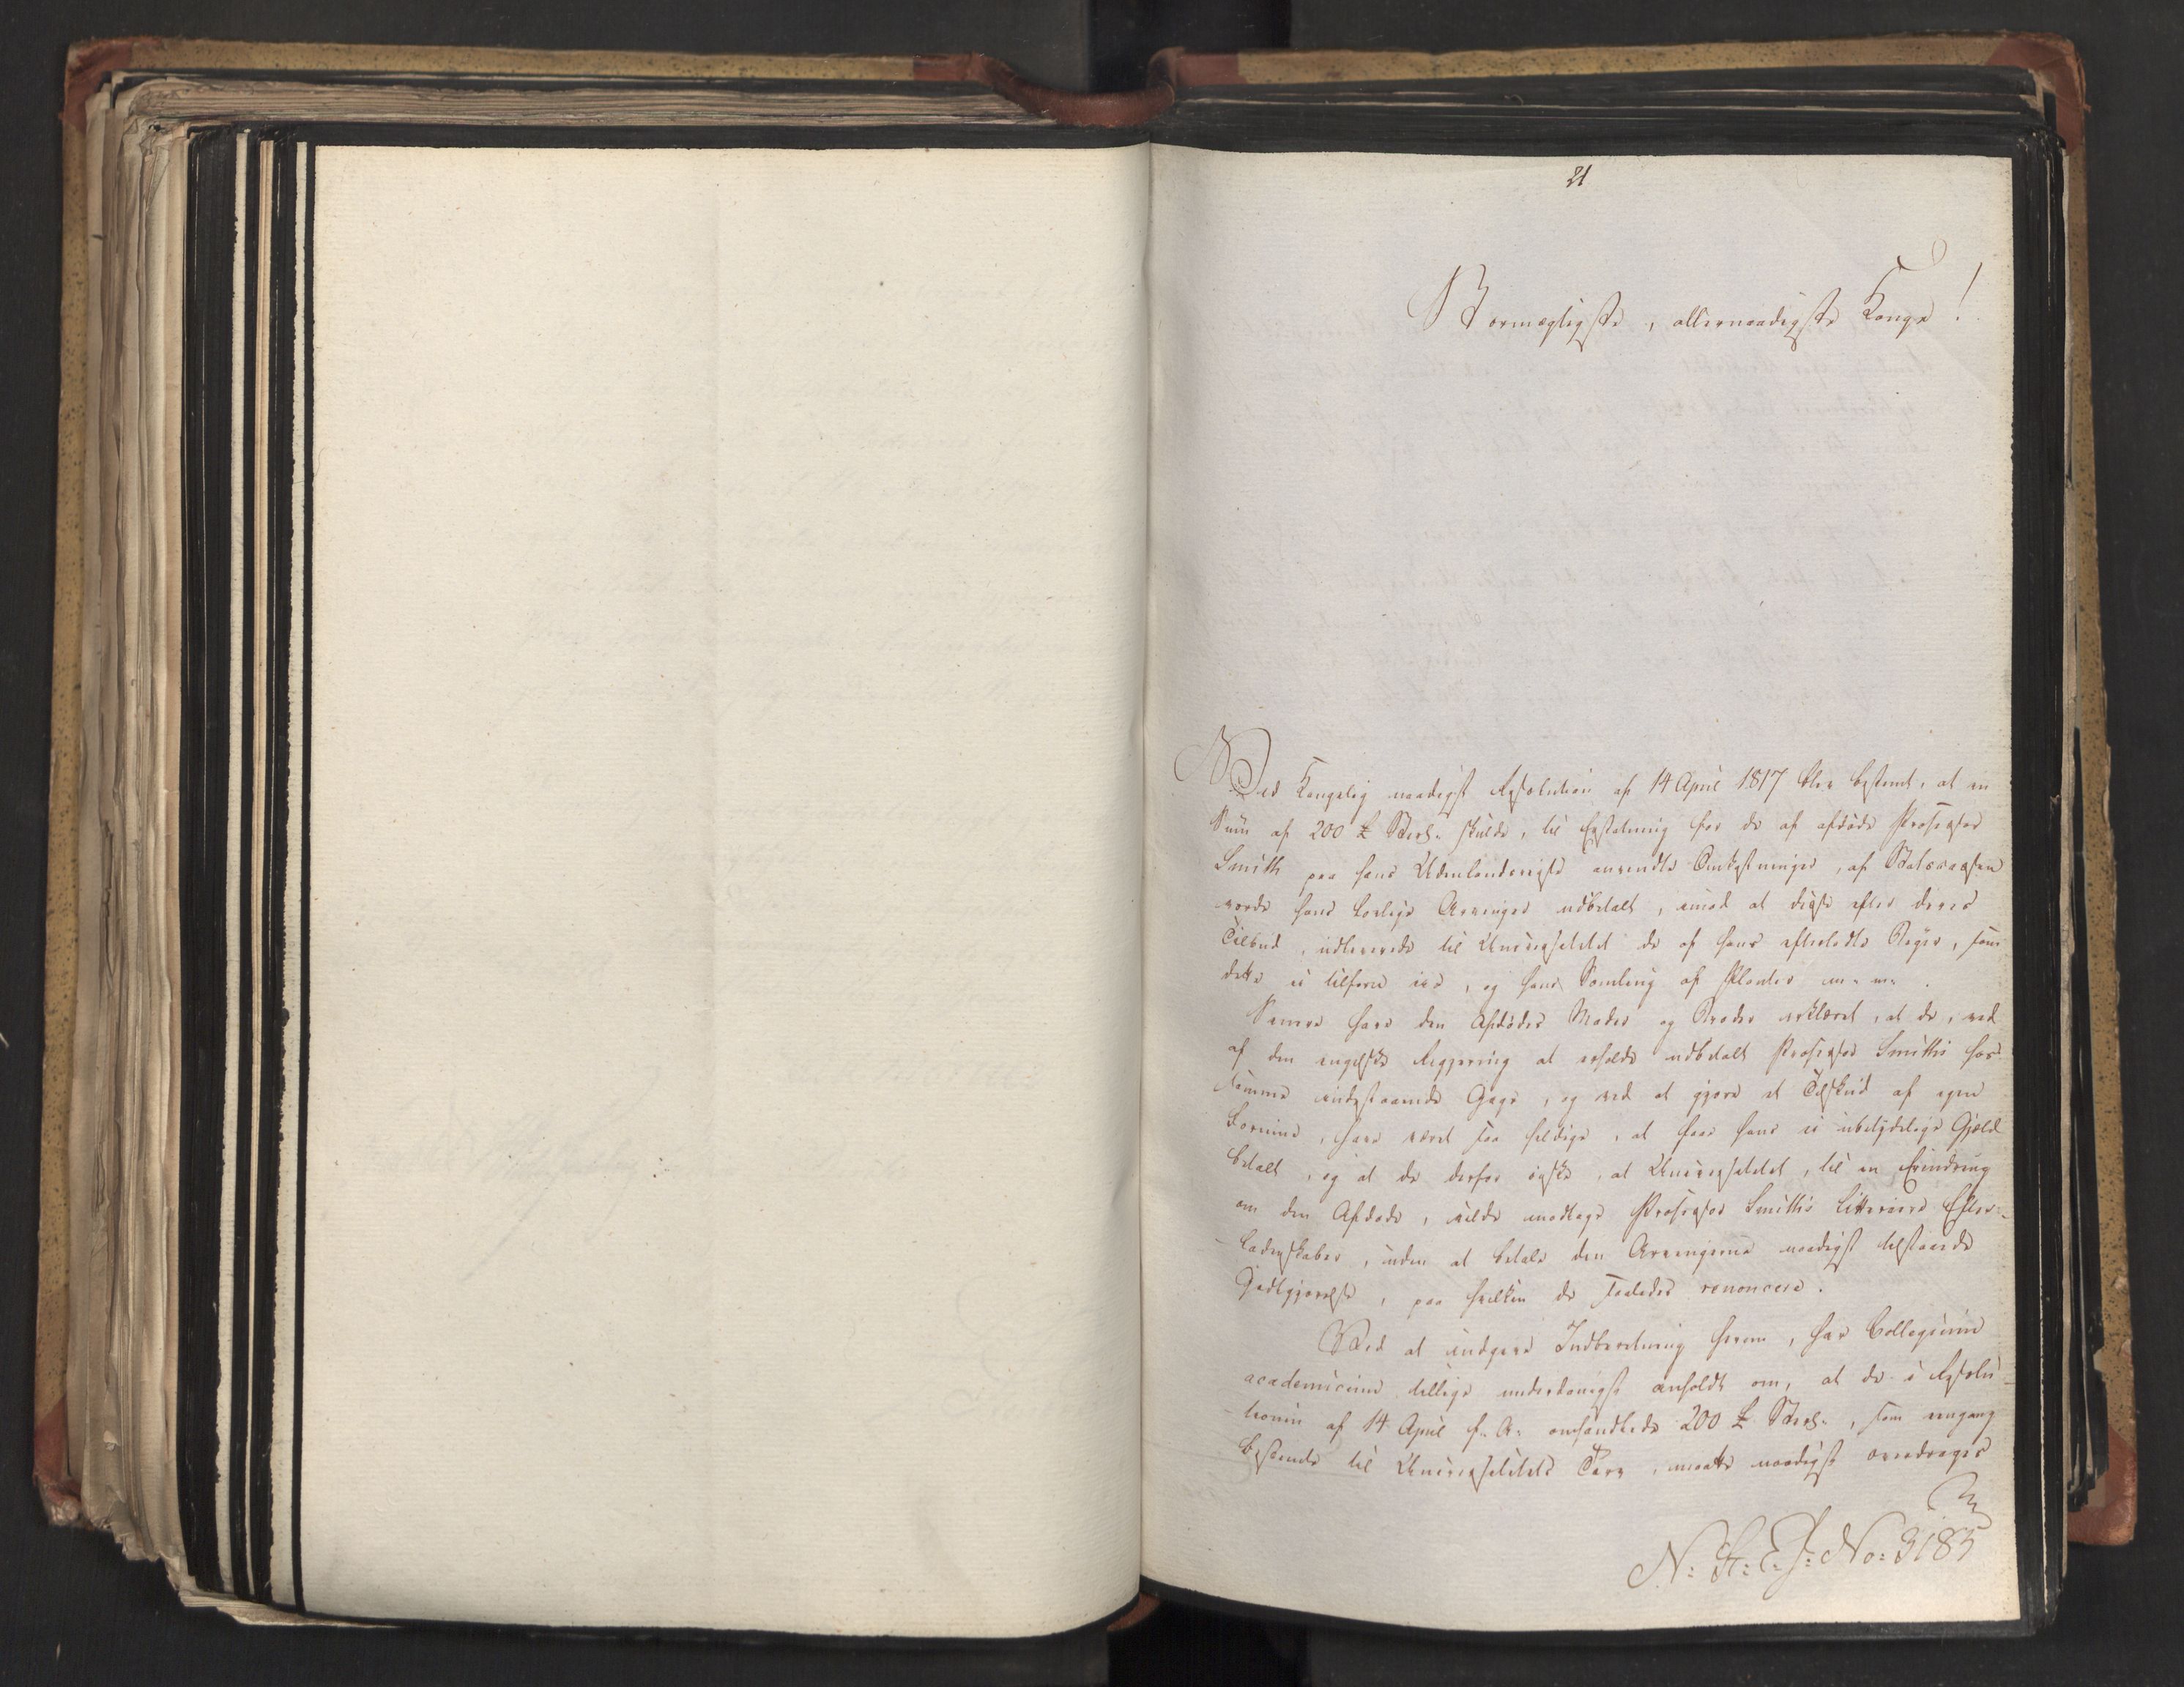 21
Stormægtigste, allernaadigste Konge!
Ved Kongelig naadigst Resolution af 14 April 1817 blev bestemt, at en
Sum af 200 £ Sterl. skulde, til Erstatning for de af afdøde Professor
Smith paa hans Udenlandsreise anvendte Omkostninger, af Statscassen
vorde hans lovlige Arvinger udbetalt, imod at disse efter deres
Tilbud, udleverede til Universitetet de af hans efterladte Bøger, som
dette ei tilforn eier, og hans Samling af Planter m. m.
Senere have den Afdødes Moder og Broder erklæret, at de, ved
af den engelske Regjering at erholde udbetalt Professor Smiths hos
samme indestaaende Gage, og ved at gjøre et Tilskud af egen
Formue, have været saa heldige, at faae hans ei ubetydelige Gjæld
betalt, og at de derfor ønske, at Universitetet, til en Erindring
om den Afdøde, vilde modtage Professor Smiths litterære Efter-
-ladenskaber, uden at betale den Arvingerne naadigst tilstaaede
Godtgjørelse, paa hvilken de saaledes renoncere.
Ved at indgive Indberetning herom, har Collegium
academicum tillige underdanigst anholdt om, at de i Resolu-
-tionen af 14 April f. A. omhandlede 200 £ Sterl., som engang
bestemte til Universitetets Tarv, maatte naadigst overdrages
N: St: E: J: No: 3185